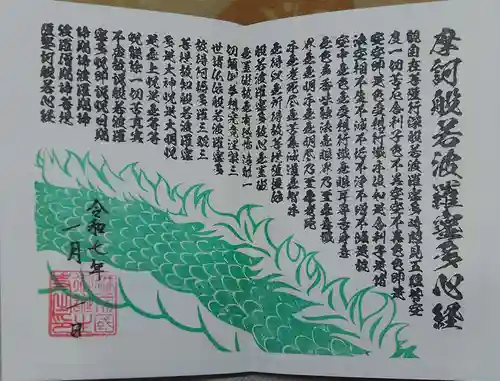 摩訶般若波羅蜜多心経
観自在菩薩行深般若波羅蜜多時照見五蘊皆空
度一切苦厄舎利子色不異空空不異色色即是
空空即是色受想行識亦復如是舎利子是諸
法空相不生不滅不垢不浄不増不減是故
空中無色無受想行識無眼耳鼻舌身意
無色声香味触法無眼界乃至無意識
界無無明亦無無明尽乃至無老死
亦無老死尽無苦集滅道無智亦
無得以無所得故菩提薩埵依
般若波羅蜜多故心無罣礙
無罣礙故無有恐怖遠離一
切顛倒夢想究竟涅槃三
世諸仏依般若波羅蜜多
故得阿耨多羅三藐三
菩提故知般若波羅蜜
多是大神呪是大明呪
是無上呪是無等等
呪能除一切苦真実
不虚故説般若波羅
蜜多呪即説呪曰羯
諦羯諦波羅羯諦
波羅僧羯諦菩提
薩婆訶般若心経
令和七年
一月一日